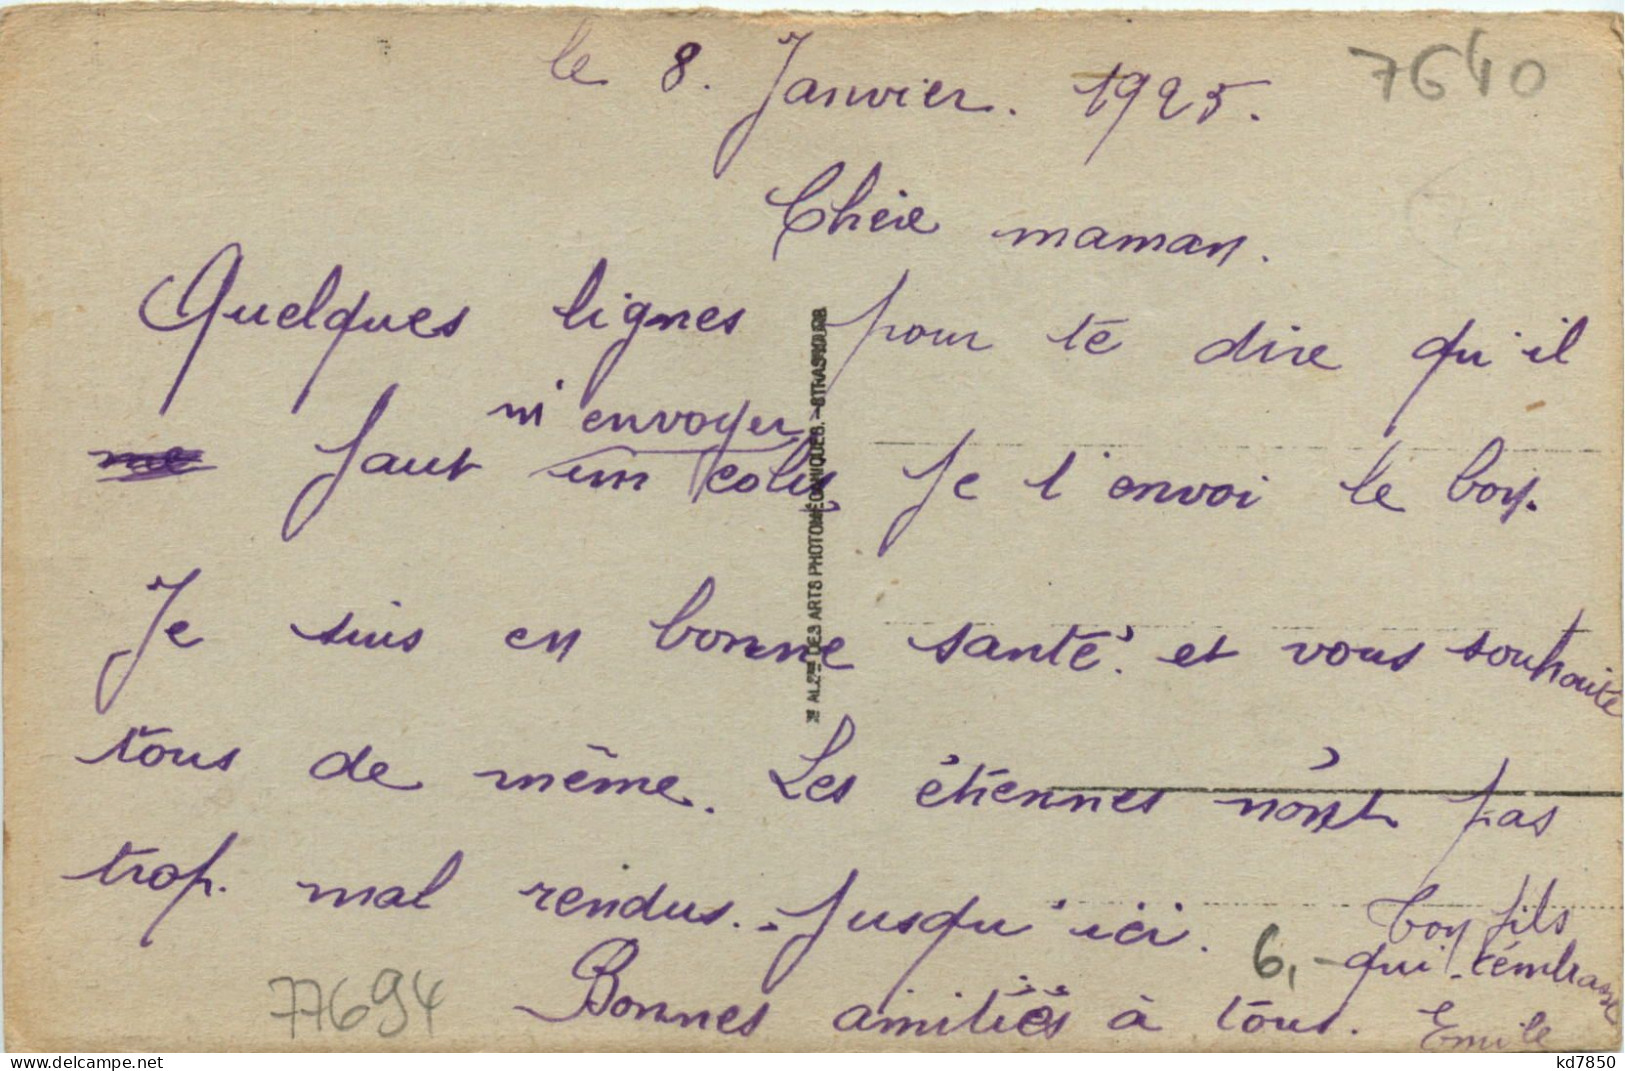 le 8. Janvier. 1925.
7640
Chère maman.
Quelques lignes pour te dire qu'il
m'envoyer
faut un colis Je t'envoi le bon.
Je suis en bonne santé. et vous souhaite
tous de même. Les étrennes n'ont pas
trop. mal rendus. Jusqu'ici.
Ton fils
6,- qui t'embrasse
Bonnes amitiés à tous. Emile
77694
DES ARTS PHOTOMÉCANIQUES. - STRASBOURG
kd7850